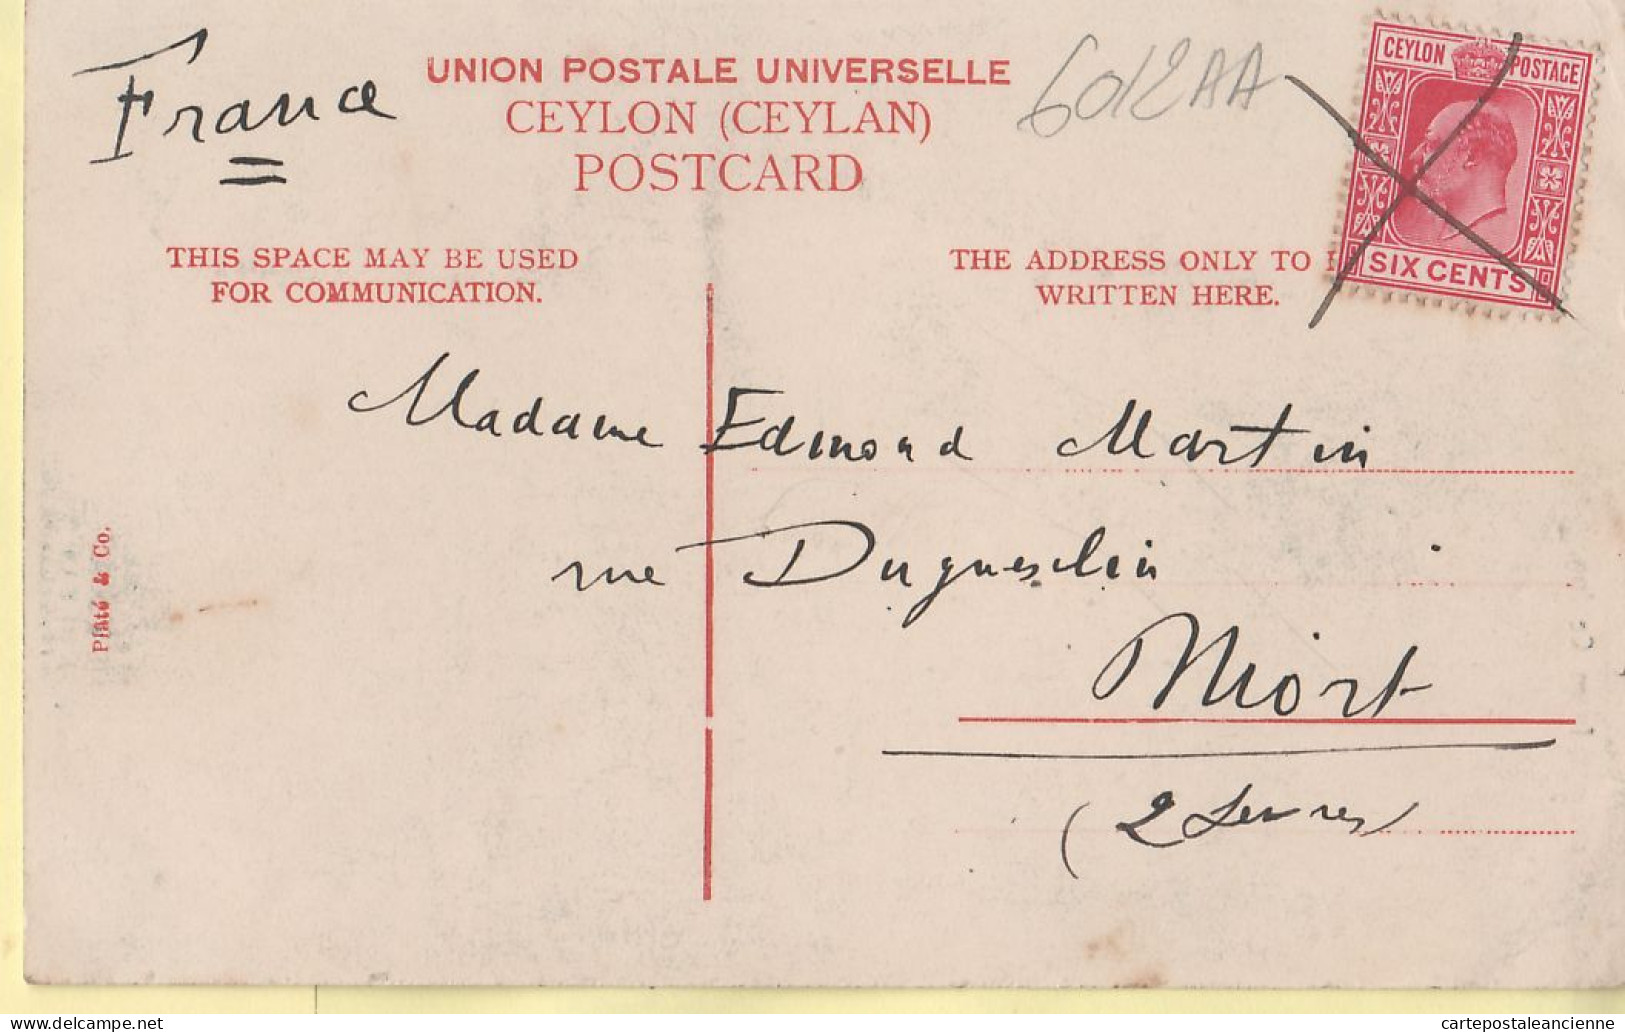 France
UNION POSTALE UNIVERSELLE
CEYLON (CEYLAN)
POSTCARD
6012AA
CEYLON POSTAGE
SIX CENTS
THIS SPACE MAY BE USED
FOR COMMUNICATION.
THE ADDRESS ONLY TO
WRITTEN HERE.
Madame Edmond Martin
rue Duguesclin
Niort
(2 Sevres)
Plâté & Co.
delcampe.net
cartepostaleancienne